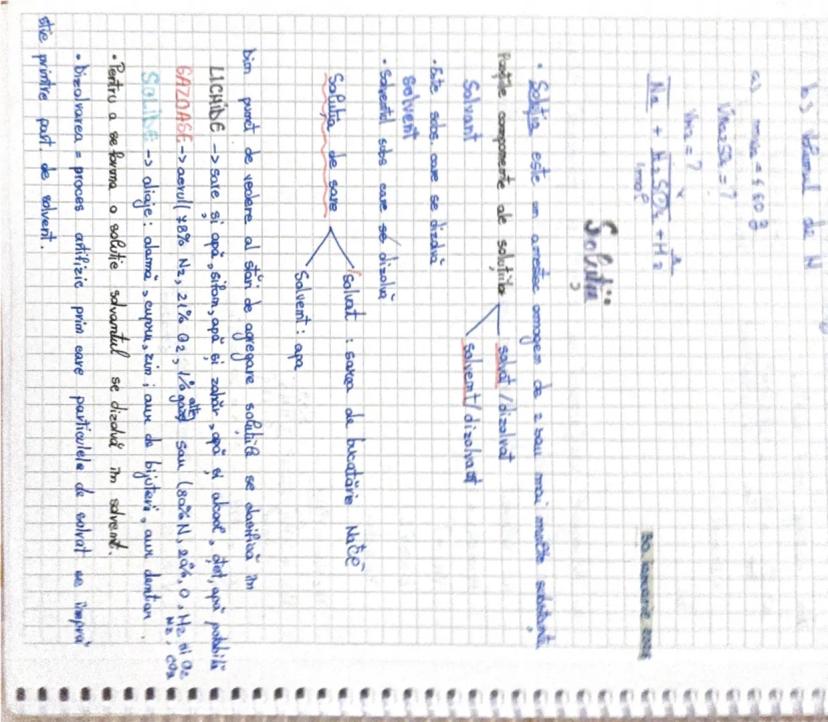 b) volumul de H
a) mNa = 460 g
VH2SO4 = ?
VH2 = ?
Na + H2SO4 + H2
1mol
Soluții
• Soluția este un amestec omogen de 2 sau mai multe substanțe
Părțile componente ale soluțiilor
solvat / dizolvat
solvent / dizolvant
Solvant
• Este subs. care se dizolvă
Solvent
subs care se dizolvă
Soluția de sare
Solvat : sarea de bucătărie NaCl
Solvent : apa
Din punct de vedere al stării de agregare soluțiile se clasifică în
LICHIDE -> sare și apă, sifon, apă și zahăr, apă și alcool, oțet, apă potabilă
GAZOASE -> aerul (78% N2, 21% O2, 1% alte gaze) sau (80% N, 20% O, H2 și O2
N2, CO2
SOLIDE -> aliaje : alamă, cupru, zin ; aur de bijuterii, aur dentar.
• Pentru a se forma o soluție solvantul se dizolvă în solvent.
• Dizolvarea = proces prin care particulele de solvat se împră
știe printre part. de solvent.